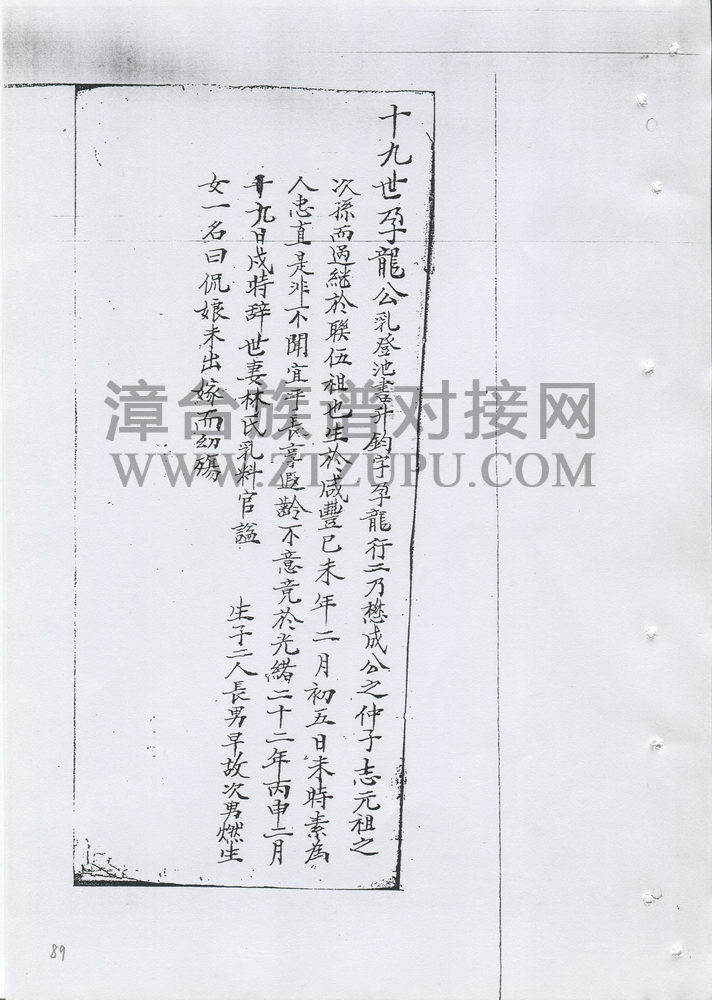 十九世孕龍公乳登池書升鈞字孕龍行二乃懋成公之仲子志元祖之
次孫而過継於聯伍祖也生於咸豐己未年二月初五日未時素為
人忠直是非不聞宜乎長享遐齡不意竟於光緒二十二年丙申二月
十九日戌時辞世妻林氏乳料官謚 生子二人長男早故次男燃生
女一名曰侃娘未出嫁而幼殤
漳台族谱对接网
WWW.ZTZUPU.COM
89